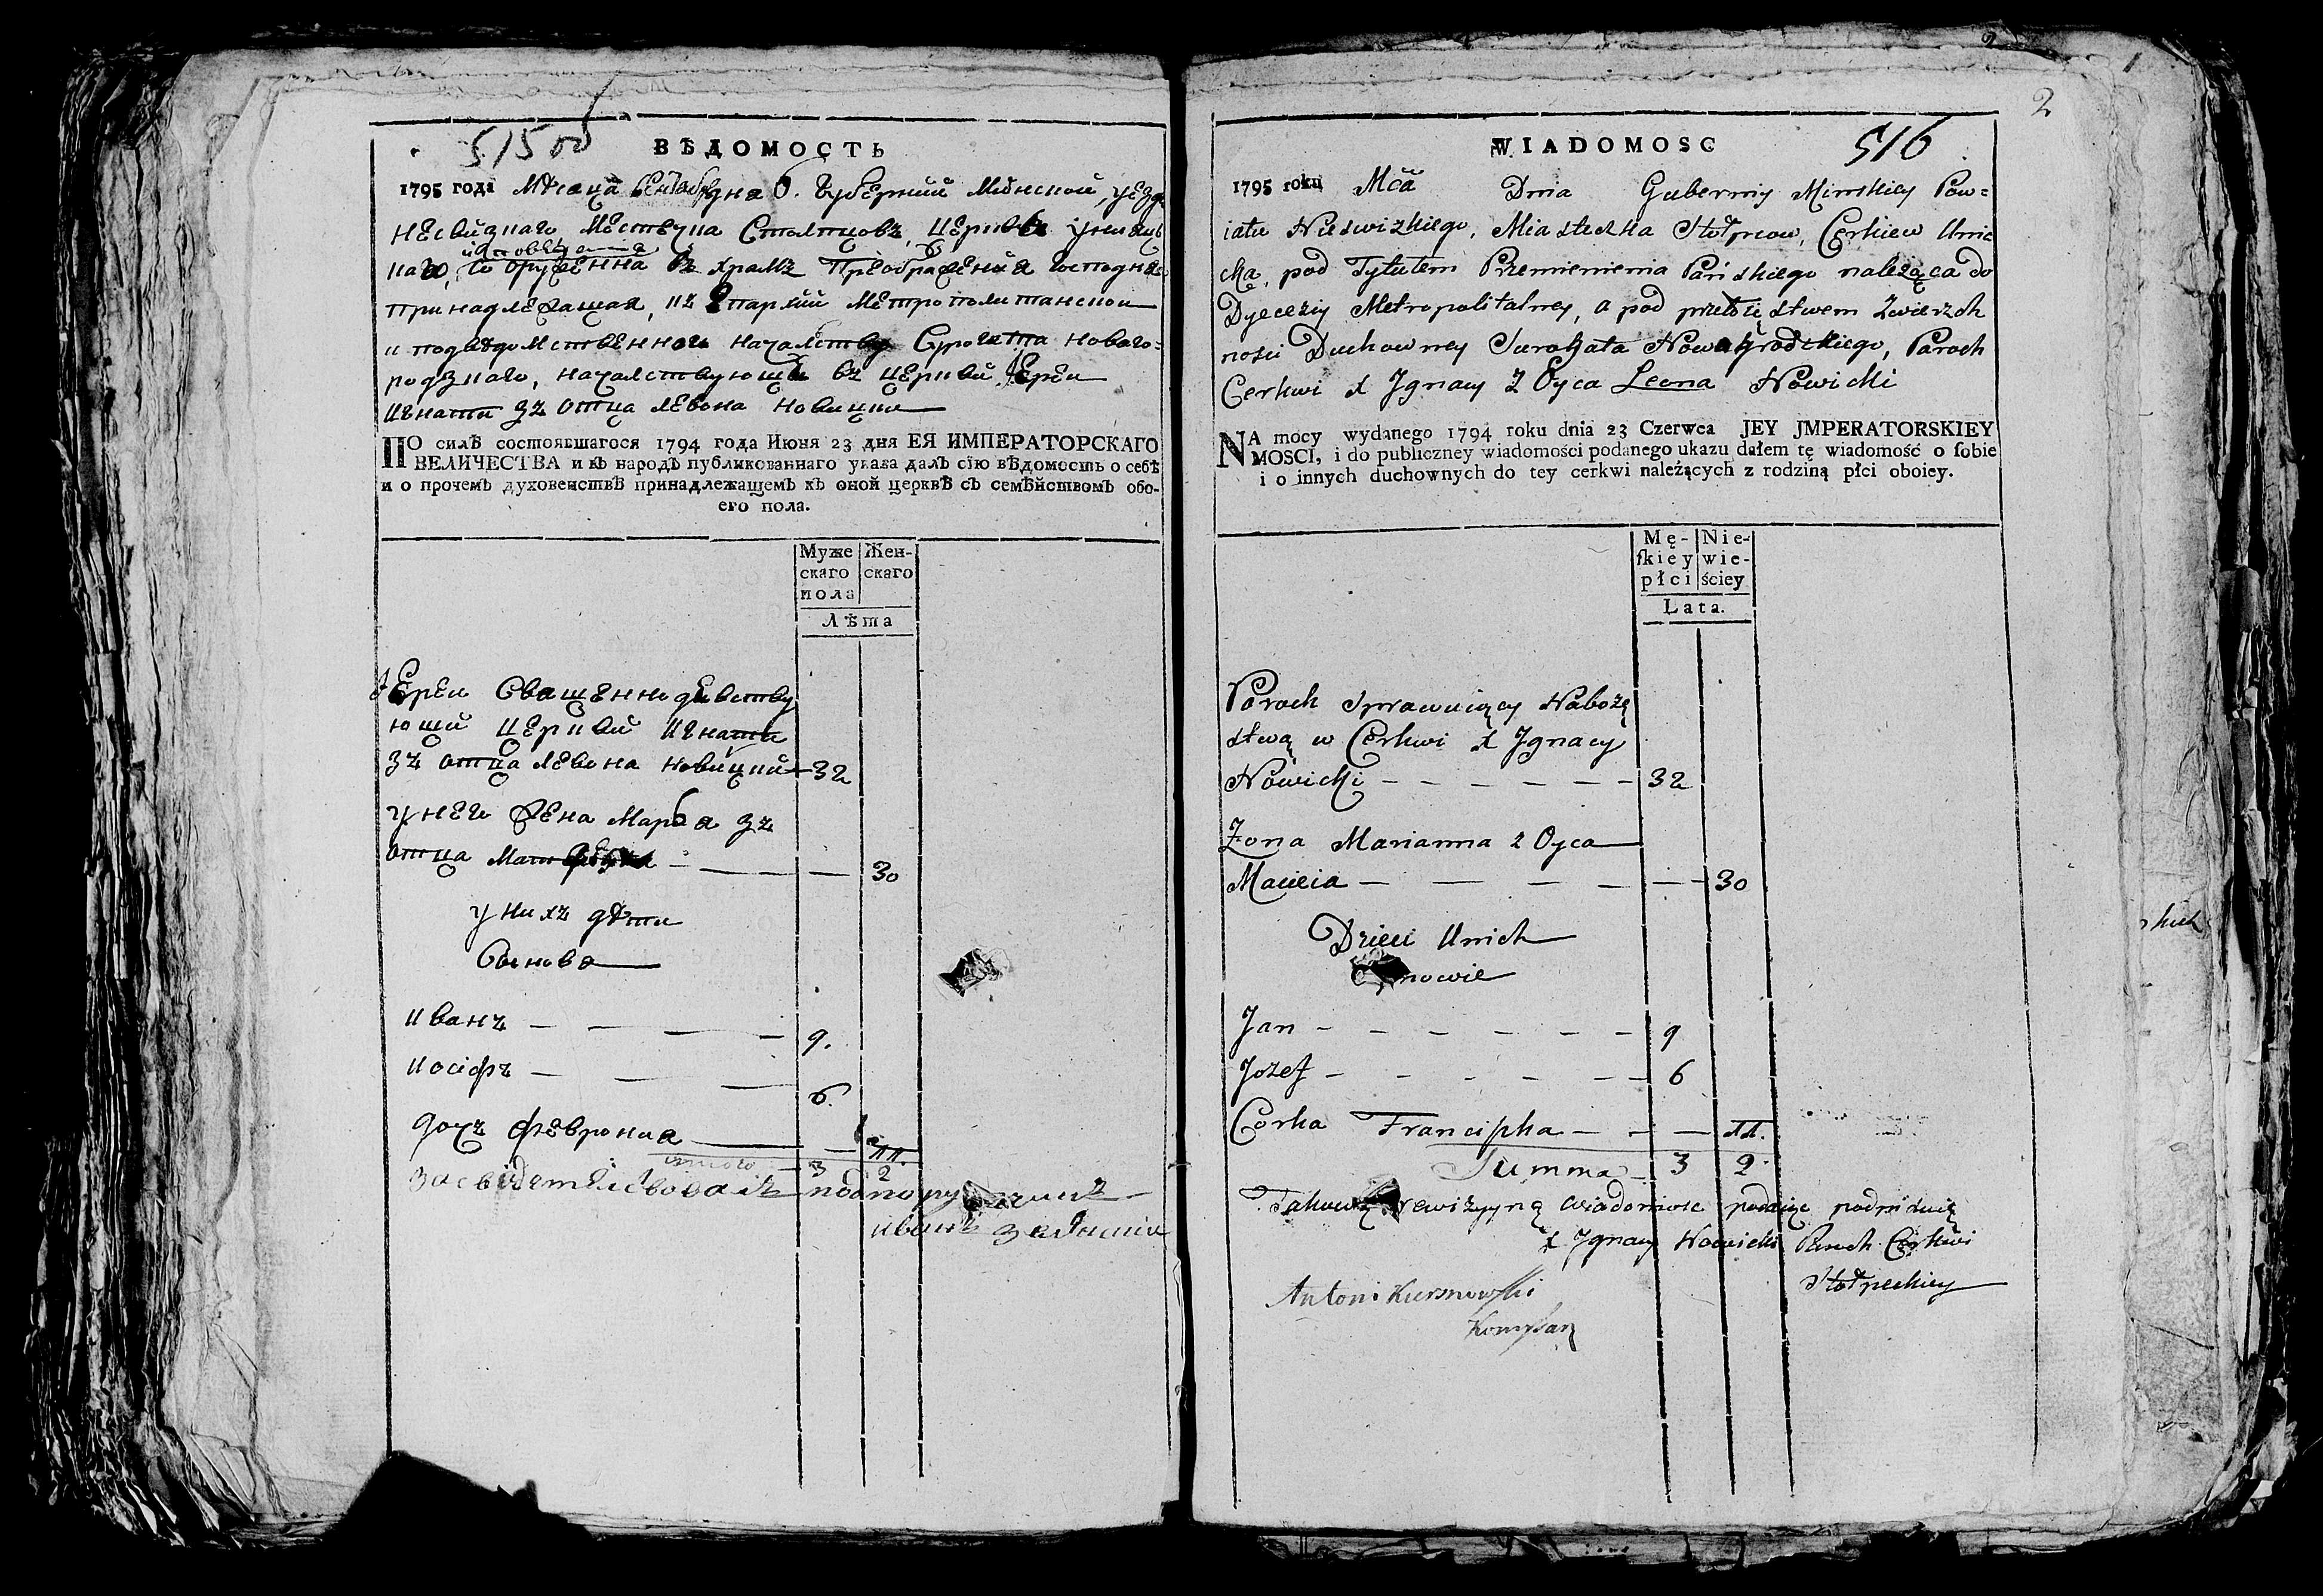 515
ВѢДОМОСТЬ
1795 года Мѣсяца Сентябр дня 6. Губернии Минской, уезда
Несвизкаго, Местечка Столпцовъ, церковь униацка
наго, сооруженна въ храмъ Преображения Господня
принадлежащая, къ Епархии Метрополитанской
и подведомственной началству Сурогатта Новаго-
родзкаго, началствующъ въ церкви Іерей
Игнати зъ отца Левона Новицки
ПО силѣ состоявшагося 1794 года Июня 23 дня ЕЯ ИМПЕРАТОРСКАГО
ВЕЛИЧЕСТВА и къ народъ публикованнаго указа далъ сїю вѣдомость о себѣ
и о прочемъ духовенствѣ принадлежащемъ къ оной церквѣ съ семѣйствомъ обо-
его пола.
Муже Жен-
скаго скаго
пола
Лѣта
Іереи Священнодѣвству
ющи церкви Игнати
зъ отца Левона Новицки 32
у него жена Маръя зъ
отца — — — 30
у нихъ дѣти
Сынова
Иванъ — — — — 9.
Иосіфъ — — — 6.
дочъ Феврониа —
итого 3 2
Засвидетелсвовалъ подпоручикъ
иванъ
2
WIADOMOSC 516
1795 roku Mca Dnia Gubernij Minskiey Pow=
iatu Nieswizkiego, Miasteczka Stołpcow, Cerkiew Unic
cka, pod Tytułem Przemienienia Pańskiego należąca do
Dyecezij Metropolitalney, a pod przełożęstwem Zwierzch
nosci Duchowney Surogata Nowogrodzkiego, Paroch
Cerkwi X Jgnacy Z Oyca Leona Nowicki
NA mocy wydanego 1794 roku dnia 23 Czerwca JEY JMPERATORSKIEY
MOSCI, i do publiczney wiadomości podanego ukazu dałem tę wiadomość o sobie
i o innych duchownych do tey cerkwi należących z rodziną płci oboiey.
Mę- Nie-
skiey wie-
płci ściey
Lata.
Paroch Sprawuiący Nabożę
stwą w Cerkwi X Jgnacy
Nowicki — — — — — — 32
Zona Marianna z Oyca
Macieia — — — — — 30
Dzieci Unich
Synowie
Jan — — — — — — 9
Jozef — — — — — — 6
Corka Franciszka — — — 11.
Summa 3 2.
Takową rewizyyną wiadomosc podaiąc podpisuię
X Jgnacy Nowicki Paroch Cerkwi
Stołpeckiey
Antoni
Komisarz